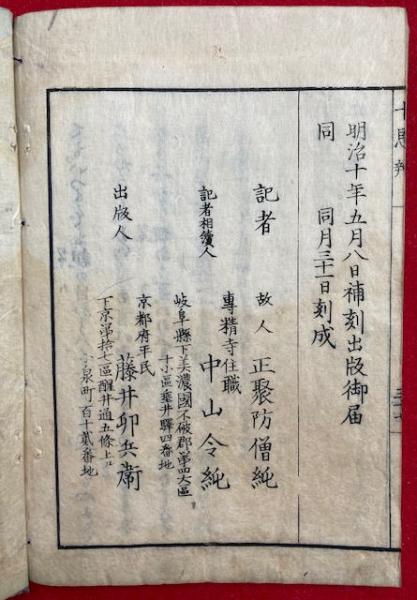 明治十年五月八日補刻出版御届
同 同月三十一日刻成
記者 故人 正聚防僧純
專精寺住職
記者相續人 中山令純
岐阜縣下美濃國不破郡第四大區
十小區垂井驛四番地
京都府平民
出版人 藤井卯兵衛
下京第拾七區醒井通五條上ル
小泉町百十貳番地
十思弁